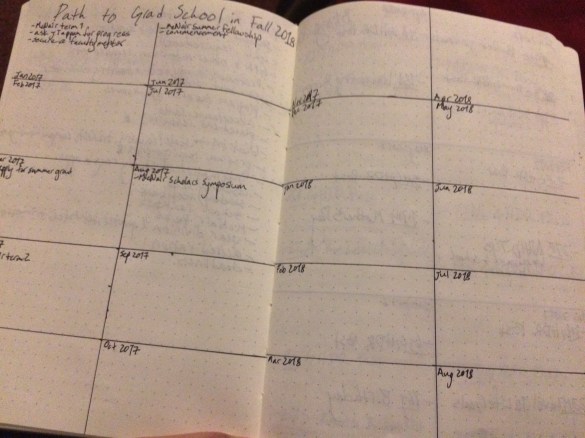 Path to Grad School in Fall 2018
-McNair term 1
-ask for progress
faculty mentor
Jan 2017
Feb 2017
ar 2017
pply for summer grad
7
r term 2
-McNair Summer Fellowship
-commencement
Jun 2017
Jul 2017
Aug 2017
-McNair Scholars Symposium
Sep 2017
Oct 2017
Nov 2017
2017
Jan 2018
Feb 2018
Mar 2018
Apr 2018
May 2018
Jun 2018
Jul 2018
Aug 2018